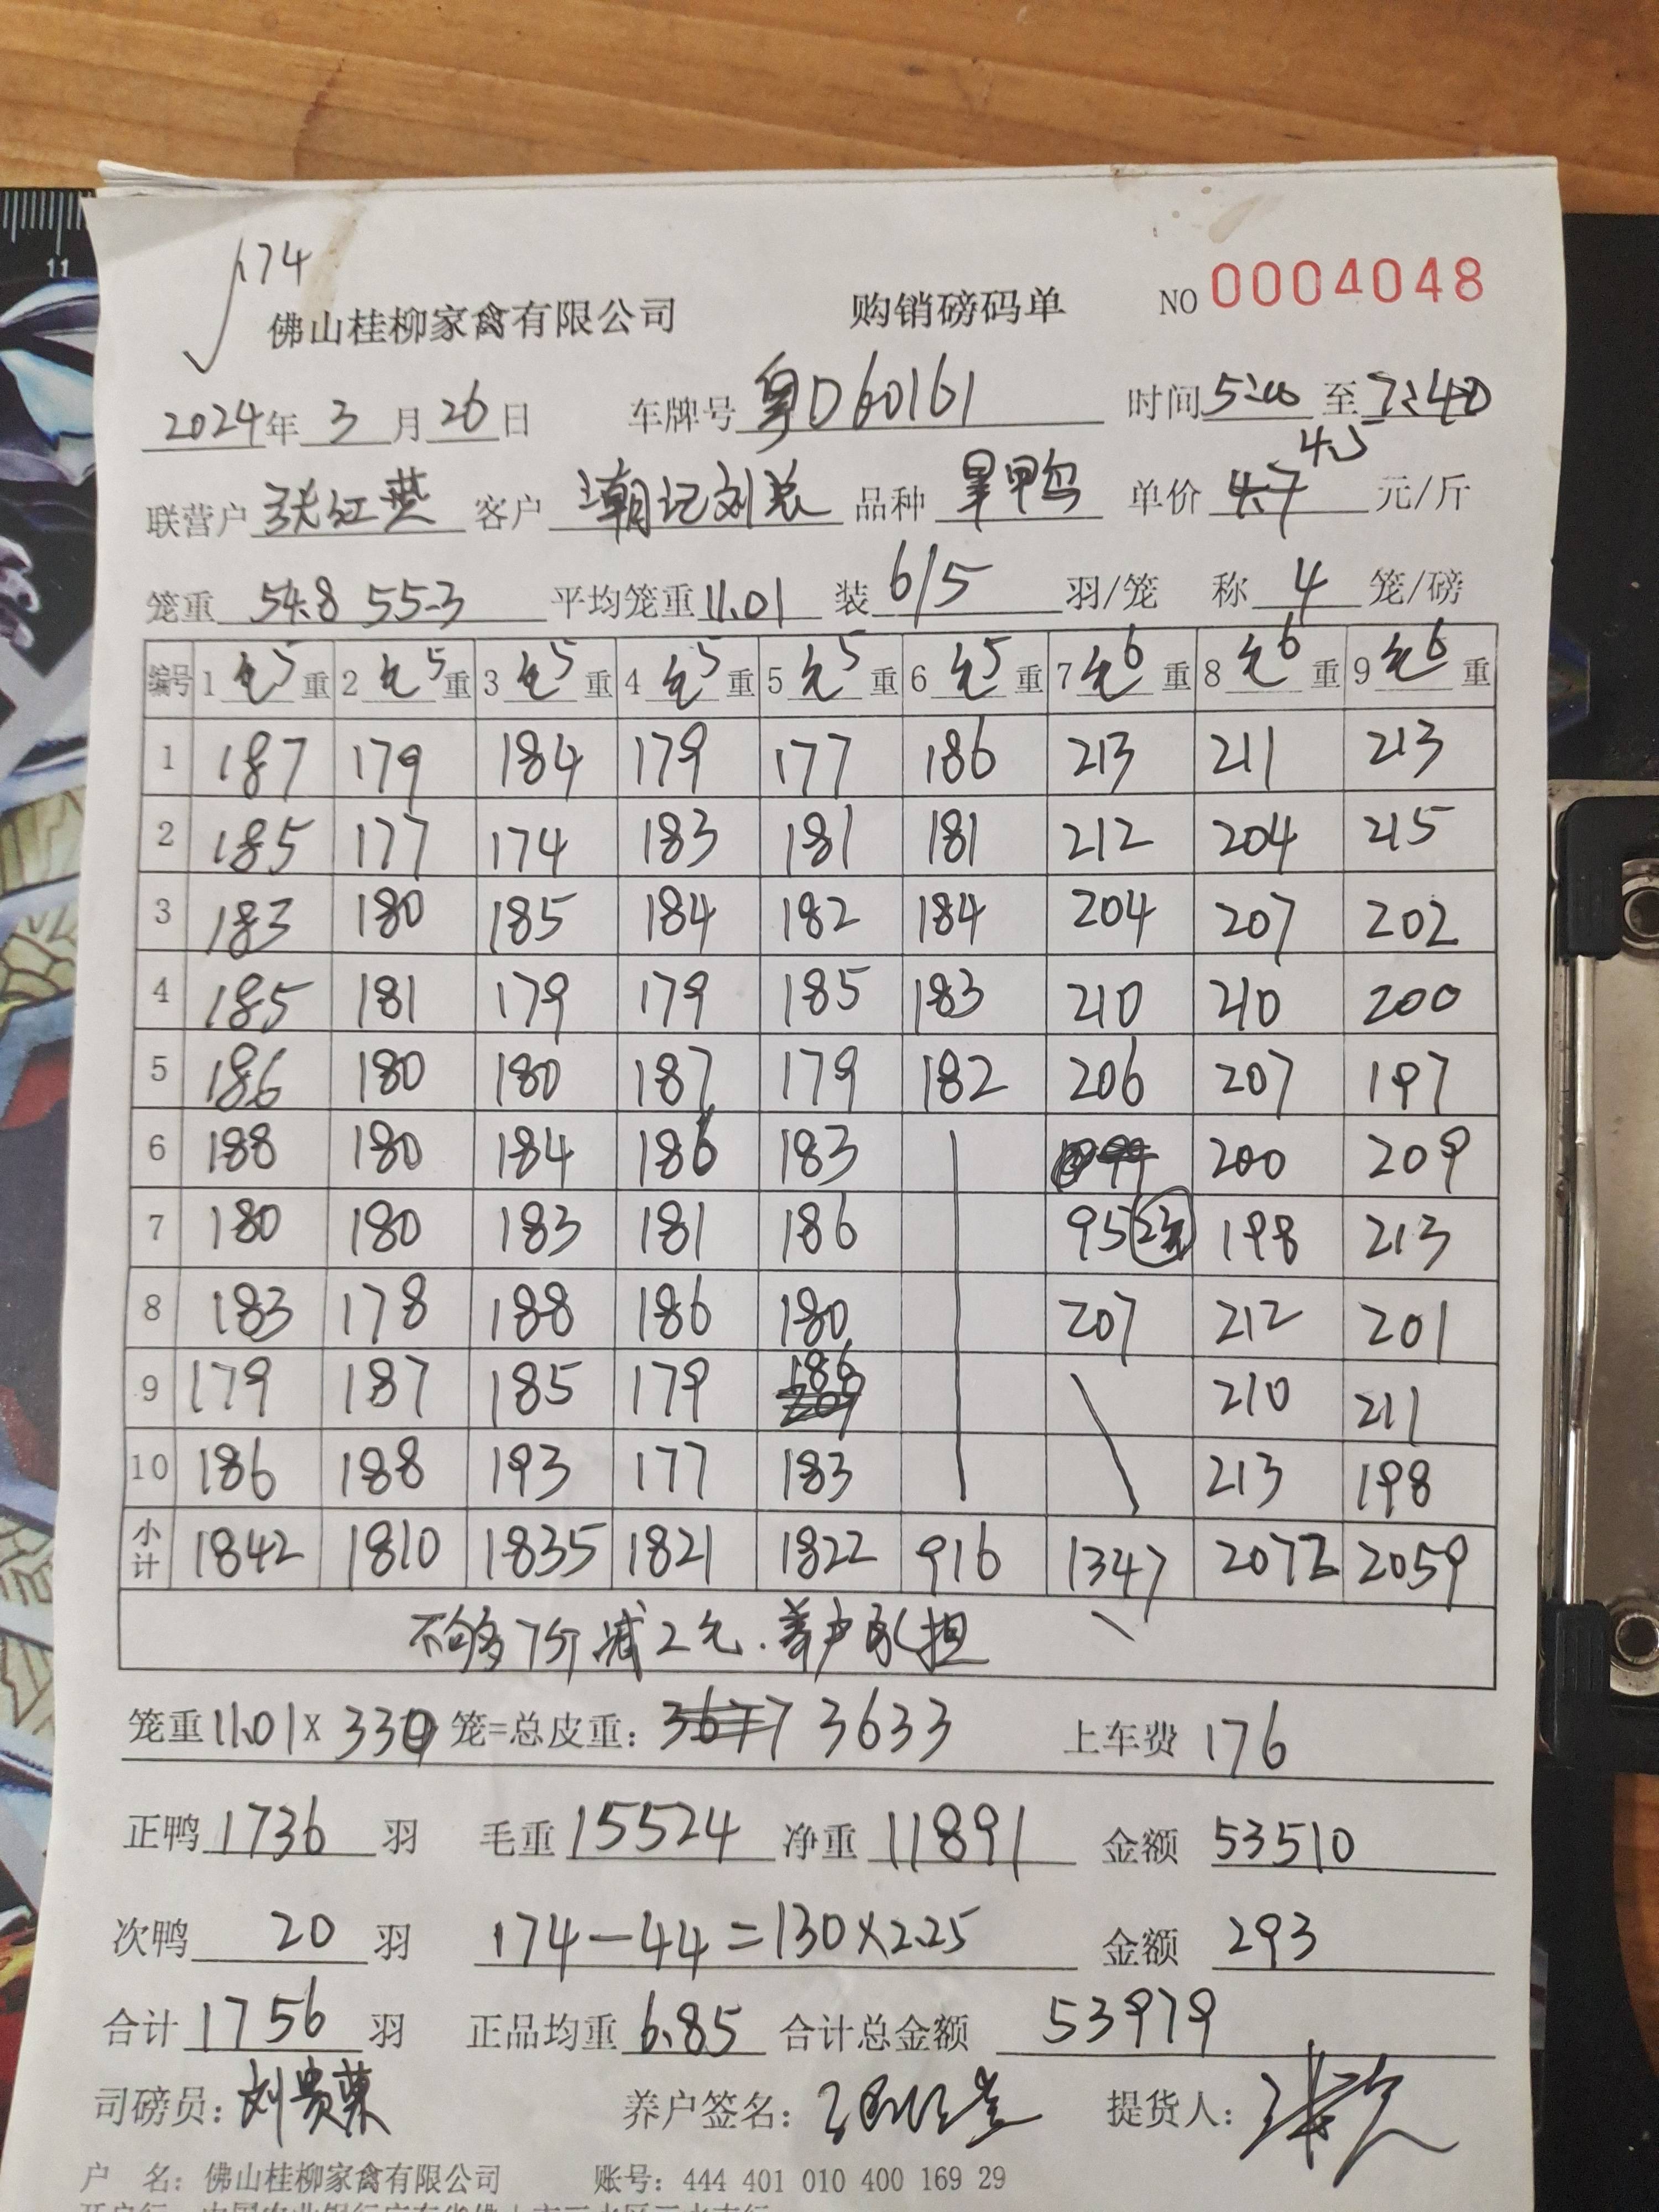 174
佛山桂柳家禽有限公司 购销磅码单 NO 0004048
2024年 3 月 26 日 车牌号 粤D60161 时间 5:00 至 7:40
4.5
联营户 张红燕 客户 潮记刘总 品种 旱甲鸟 单价 4.7 元/斤
笼重 54.8 55.3 平均笼重 11.01 装 6/5 羽/笼 称 4 笼/磅
编号 1 5 重 2 5 重 3 5 重 4 5 重 5 5 重 6 5 重 7 6 重 8 6 重 9 6 重
1 187 179 184 179 177 186 213 211 213
2 185 177 174 183 181 181 212 204 215
3 183 180 185 184 182 184 204 207 202
4 185 181 179 179 185 183 210 210 200
5 186 180 180 187 179 182 206 207 197
6 188 180 184 186 183 200 209
7 180 180 183 181 186 95 198 213
8 183 178 188 186 180 207 212 201
9 179 187 185 179 186 210 211
10 186 188 193 177 183 213 198
小计 1842 1810 1835 1821 1822 916 1347 2072 2059
不够7斤减2元.养户承担
笼重 11.01 X 330 笼=总皮重: 3633 上车费 176
正鸭 1736 羽 毛重 15524 净重 11891 金额 53510
次鸭 20 羽 174-44=130×2.25 金额 293
合计 1756 羽 正品均重 6.85 合计总金额 53979
司磅员: 刘贵荣 养户签名: 提货人:
户 名: 佛山桂柳家禽有限公司 账号: 444 401 010 400 169 29